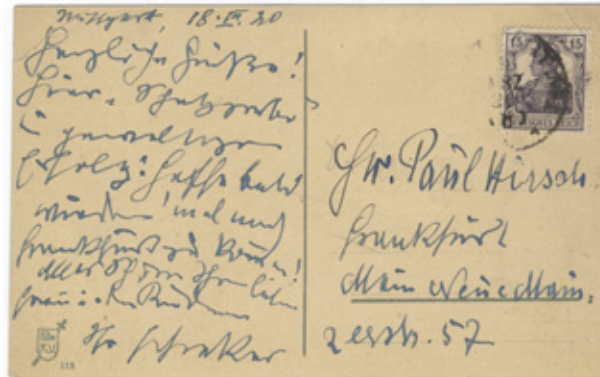 Stuttgart, 18. III. 20
Herzliche Grüße!
Hier "Schatzgräber"
gewaltigen
Erfolg! Hoffe bald
wieder 'mal nach
Frankfurt zu kommen!
Alles Schöne Ihrer lieben
Frau u. den Kindern
Ihr Schreker
113
15 15
Hr. Paul Hirsch
Frankfurt
Main Neue Main-
zerstr. 57